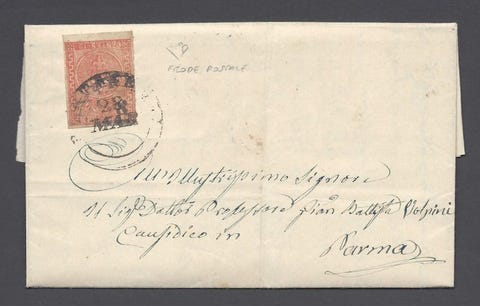 13
FRODE POSTALE
28
MAR
All'Illustrissimo Signore
Il Sigr Dottor Professore Gian Battista Volpini
Causidico in
Parma